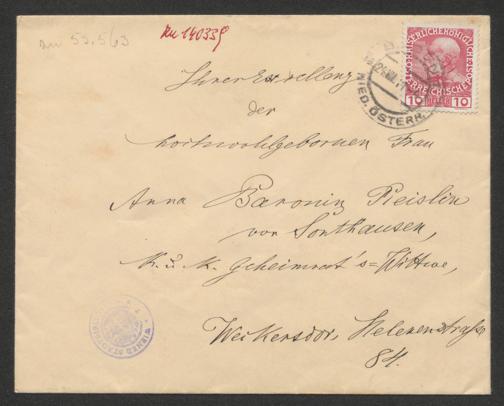 53.563
140339
KAISERLICHE KÖNIGL
ÖSTERREICHISCHE
10 10
NIED. ÖSTERR.
Ihrer Exzellenz
der
hochwohlgebornen Frau
Anna Baronin Pleislin
von Sonthausen,
k. u. k. Geheimrat's-Wittwe,
Weikersdorf, Helenenstrasse
84.
WIENER